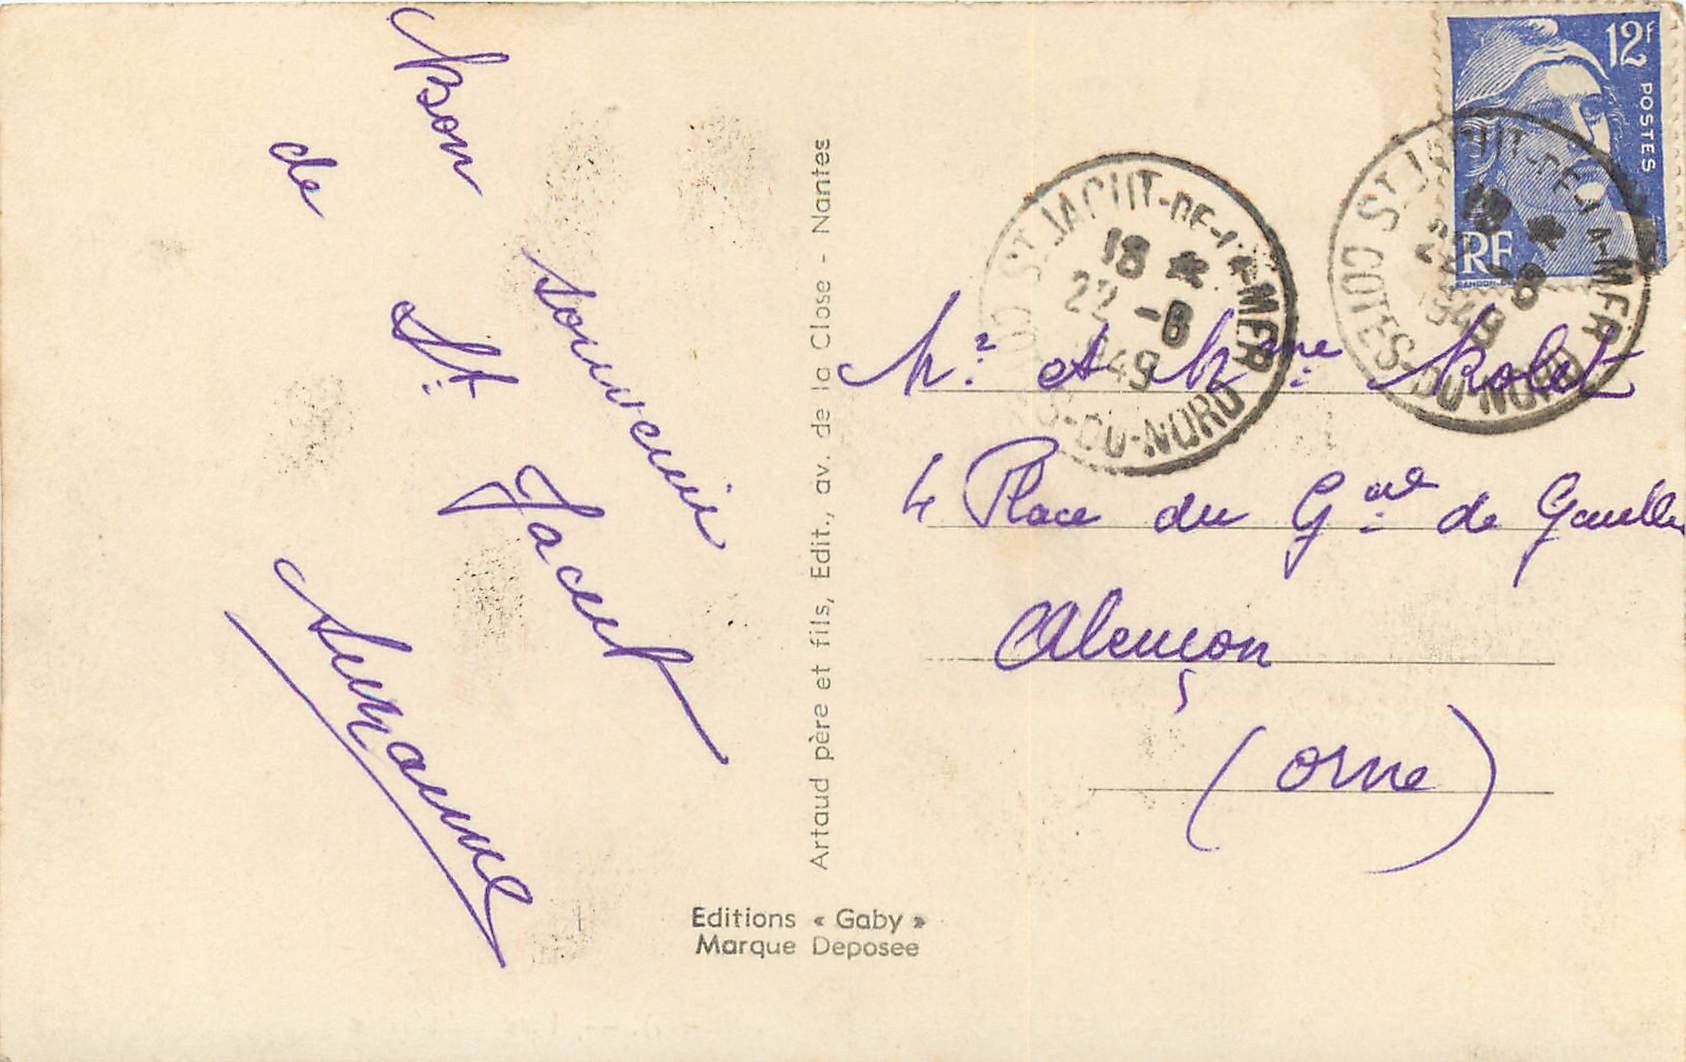 Bon souvenir
de St. Jacut
Suzanne
Artaud père et fils, Edit., av. de la Close - Nantes
Editions « Gaby »
Marque Deposee
12F
POSTES
RF
ST JACUT-DE-LA-MER
18 *
22 -8
1949
COTES-DU-NORD
ST JACUT-DE-LA-MER
18 *
22 -8
1949
COTES-DU-NORD
Mr. et Mme
4 Place du Gal de Gaulle
Alençon
(Orne)